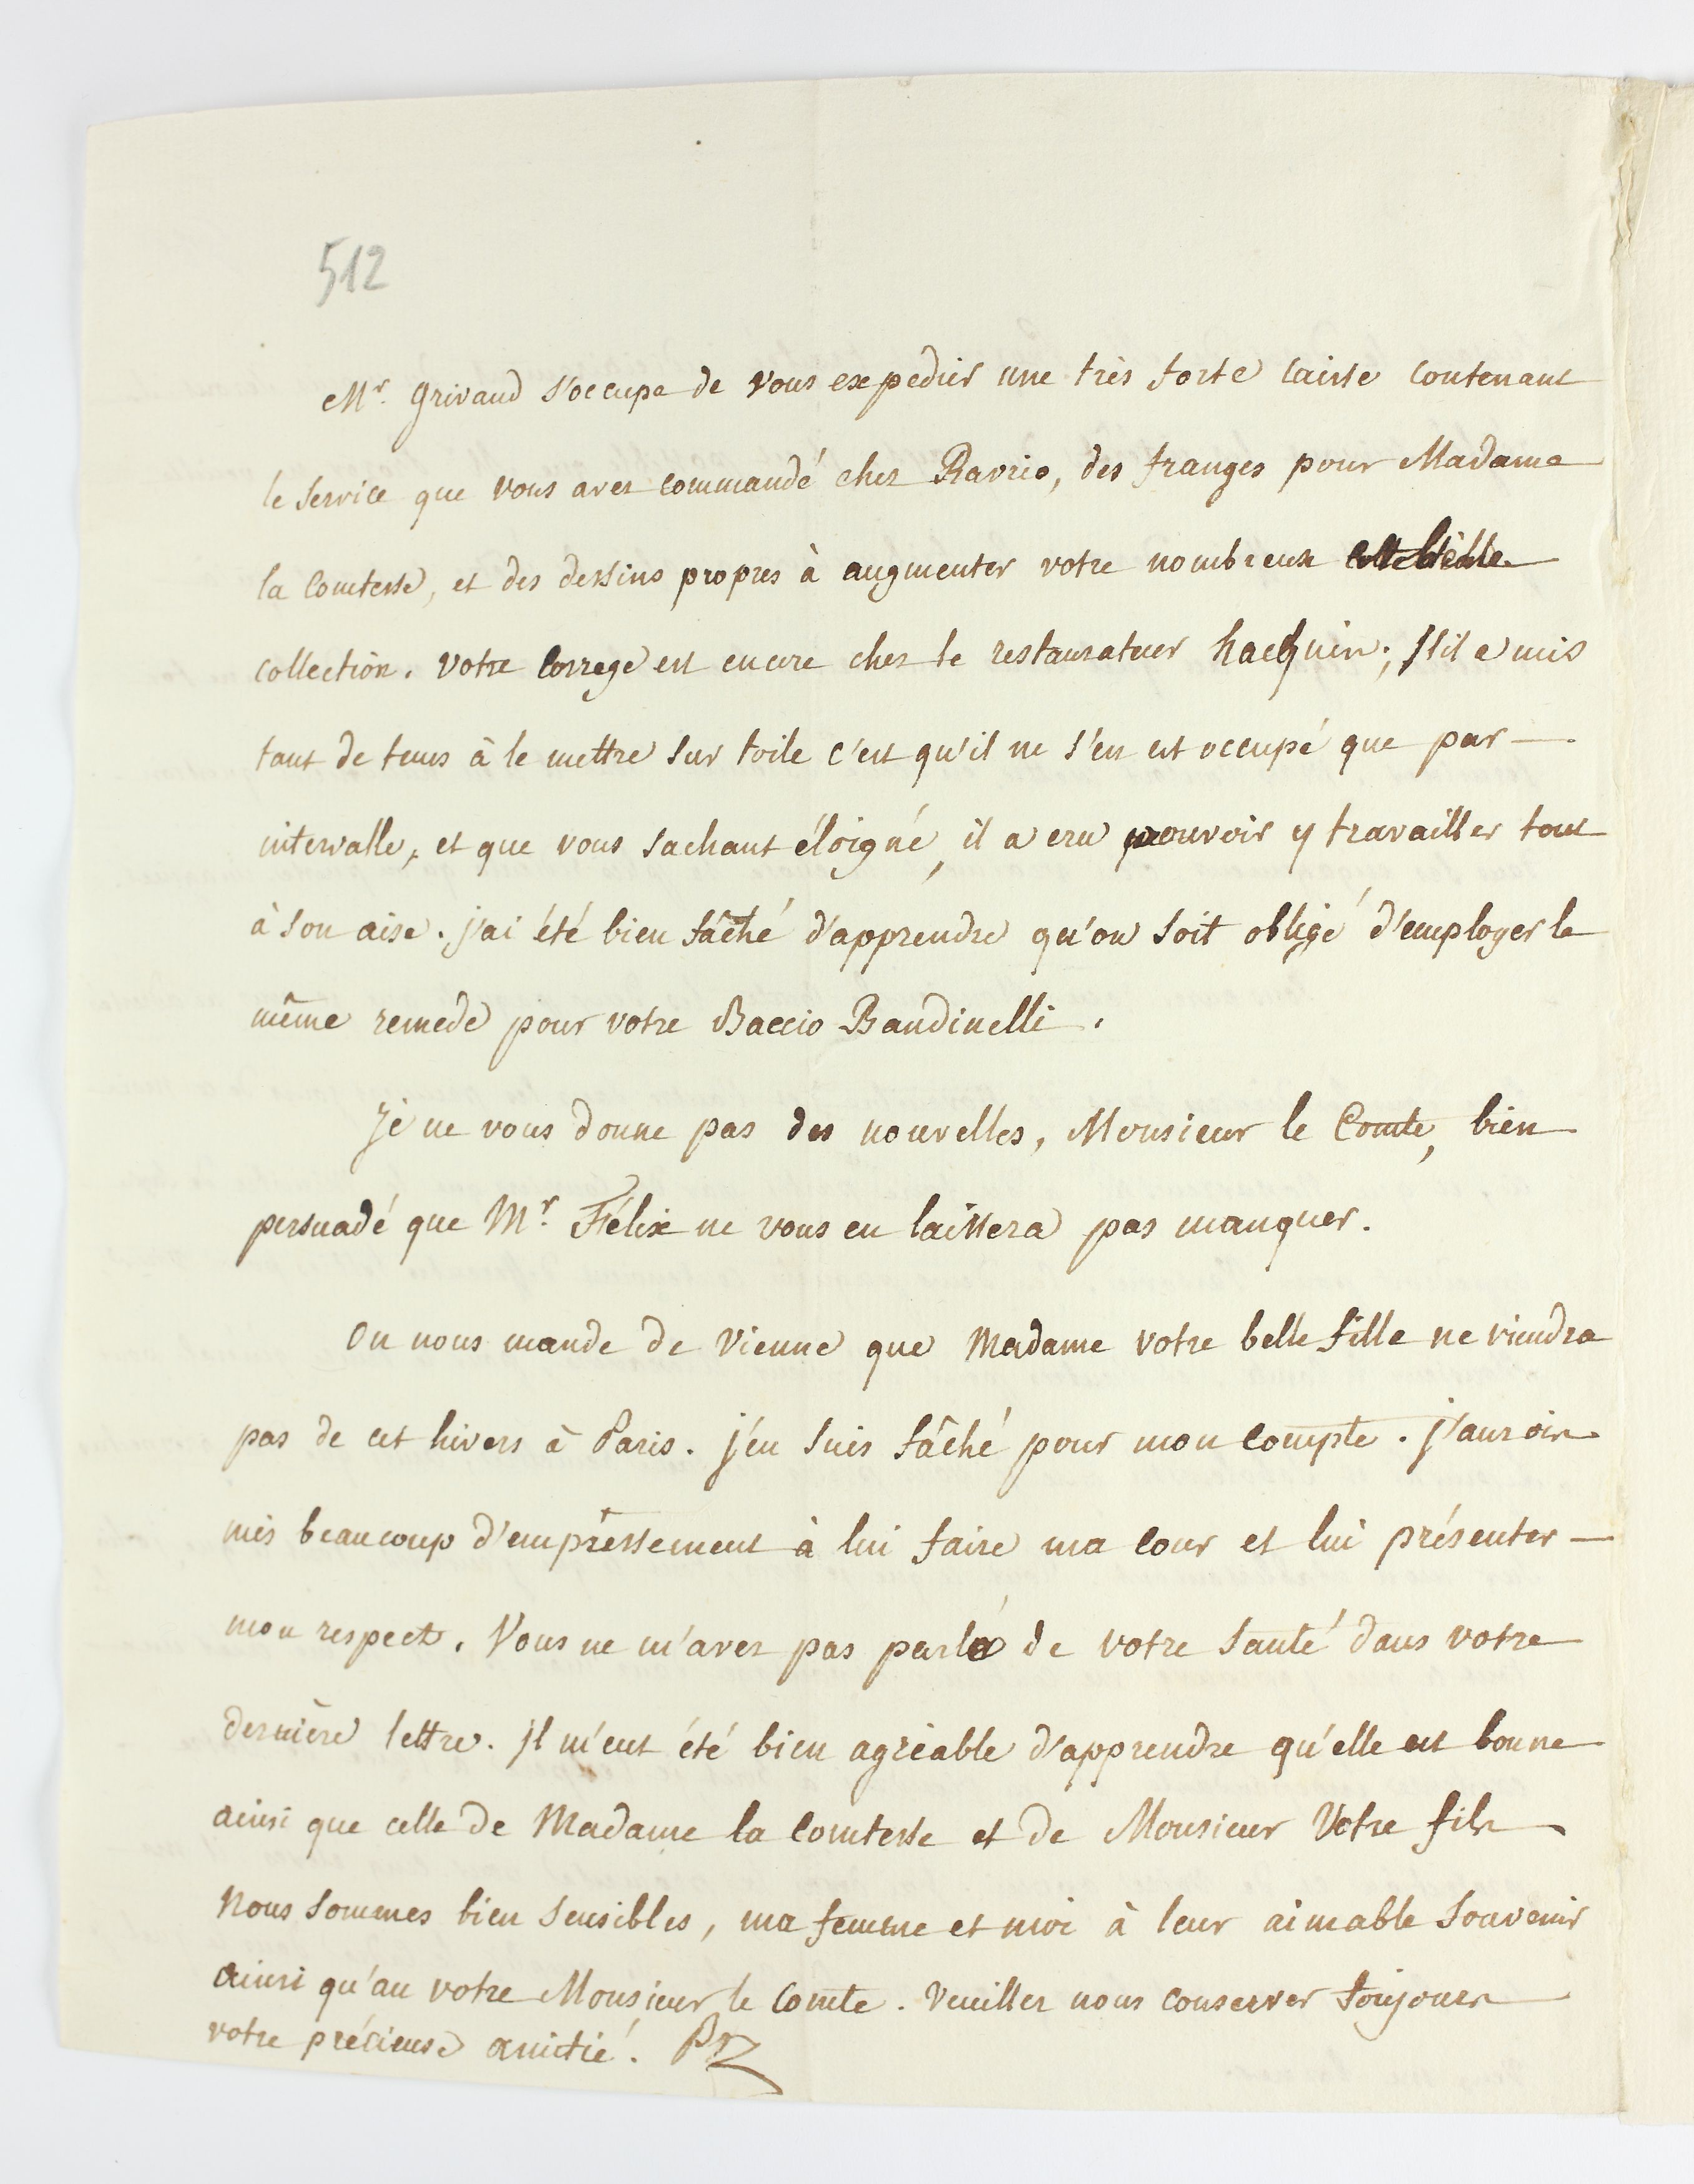 512
Mr. Grivaud s'occupe de vous expedier une très forte caisse contenant
le service que vous avez commandé chez Ravrio, des franges pour Madame
la Comtesse, et des dessins propres à augmenter votre nombreux
collection. Votre Correge est encore chez le restaurateur hacquin; s'il a mis
tant de tems à le mettre sur toile c'est qu'il ne s'en est occupé que par
intervalle, et que vous sachant éloigné, il a cru pouvoir y travailler tout
à son aise. j'ai été bien fâché d'apprendre qu'on soit obligé d'employer le
même remede pour votre Baccio Bandinelli.
Je ne vous donne pas des nouvelles, Monsieur le Comte, bien
persuadé que Mr. Félix ne vous en laissera pas manquer.
On nous mande de Vienne que Madame votre belle fille ne viendra
pas de cet hivers à Paris. j'en suis fâché pour mon compte. j'aurois
mis beaucoup d'empressement à lui faire ma cour et lui présenter
mon respect. Vous ne m'avez pas parlé de votre santé dans votre
dernière lettre. Il m'eut été bien agréable d'apprendre qu'elle est bonne
ainsi que celle de Madame la Comtesse et de Monsieur Votre fils
Nous sommes bien sensibles, ma femme et moi à leur aimable souvenir
ainsi qu'au votre Monsieur le Comte. Veuillez nous conserver toujours
votre précieuse amitié.